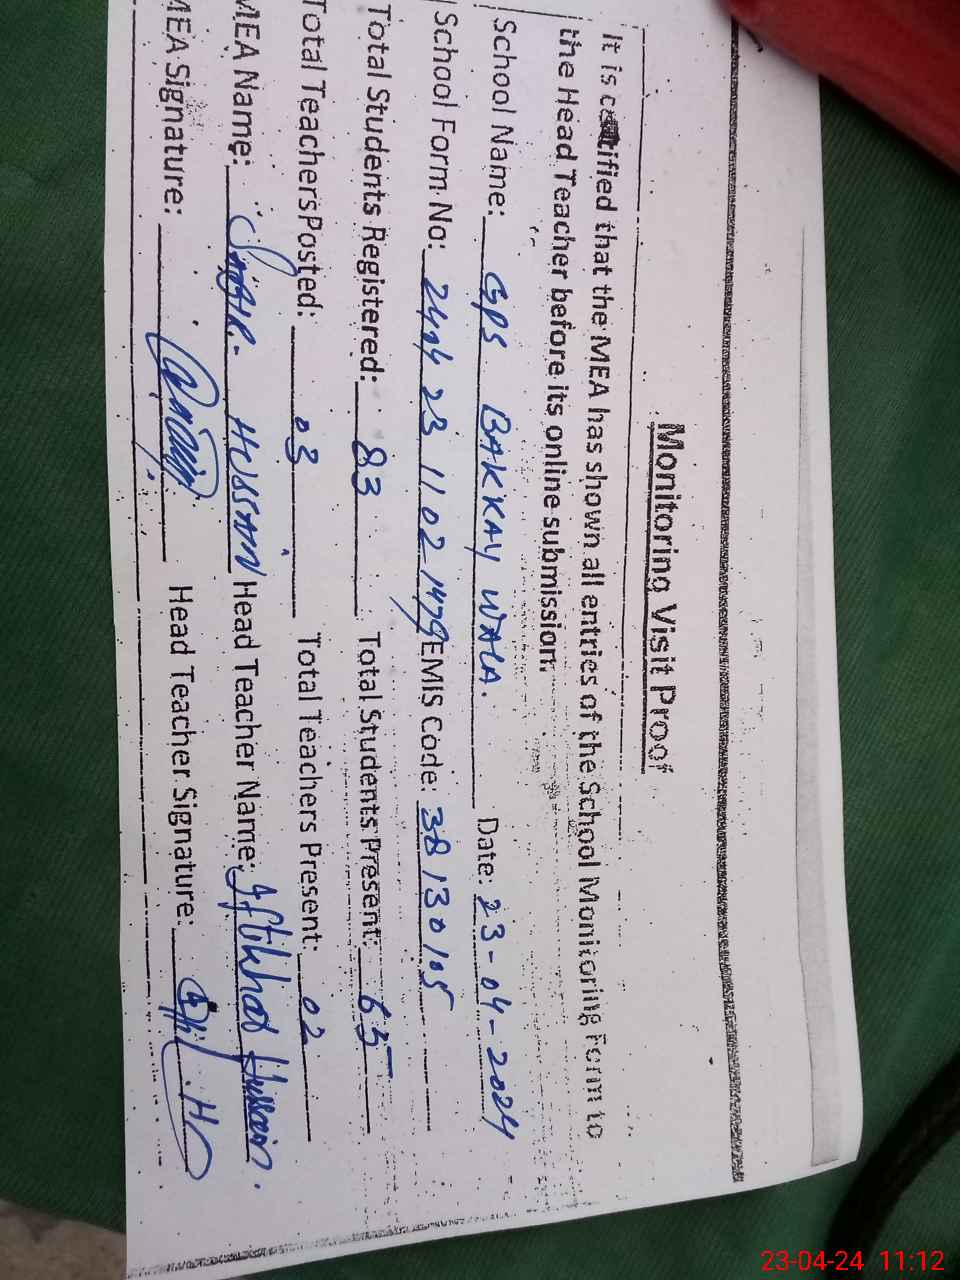 Monitoring Visit Proof
It is certified that the MEA has shown all entries of the School Monitoring Form to
the Head Teacher before its online submission.
School Name: GPS BAKKAY WALA. Date: 23-04-2024
School Form No: 2424 23 11 02 1479 EMIS Code: 38130105
Total Students Registered: 83 Total Students Present: 65
Total Teachers Posted: 03 Total Teachers Present: 02
MEA Name: HUSSAIN Head Teacher Name: Iftikhar Hussain.
MEA Signature: Head Teacher Signature:
23-04-24 11:12